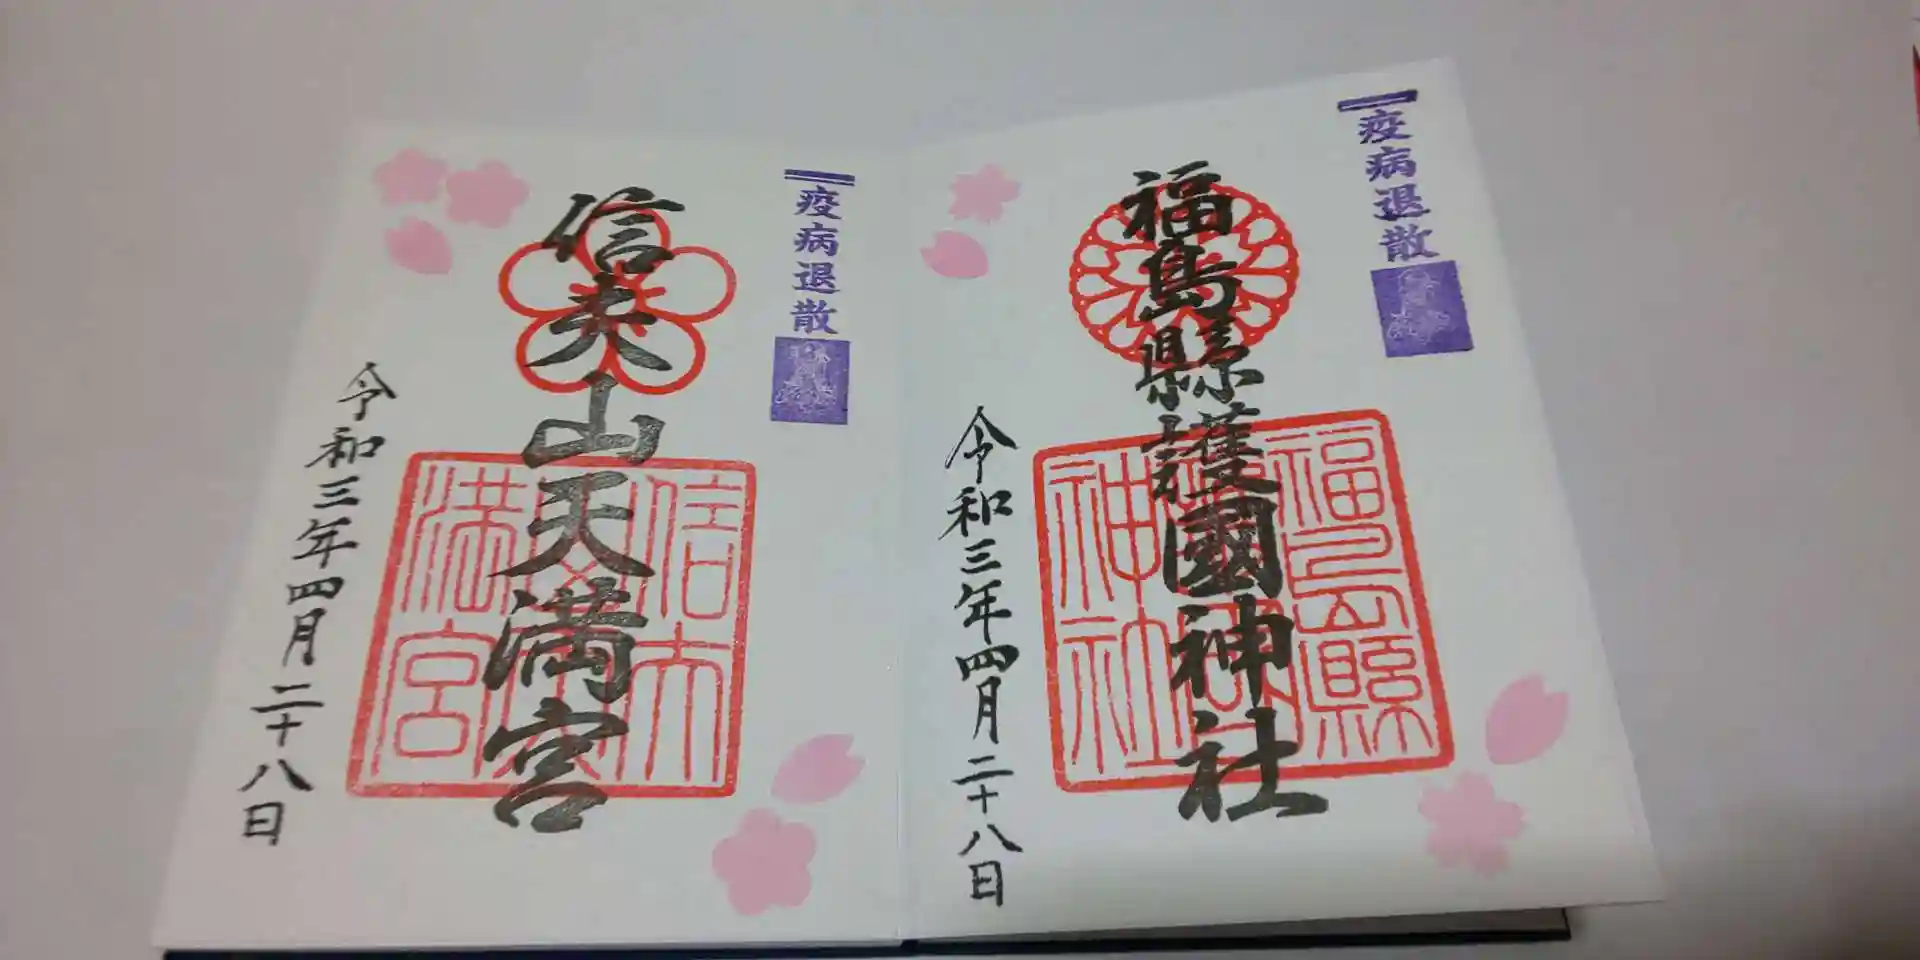 疫病退散
福島縣護國神社
福島縣
神社
令和三年四月二十八日
疫病退散
信夫山天満宮
信夫
満宮
令和三年四月二十八日